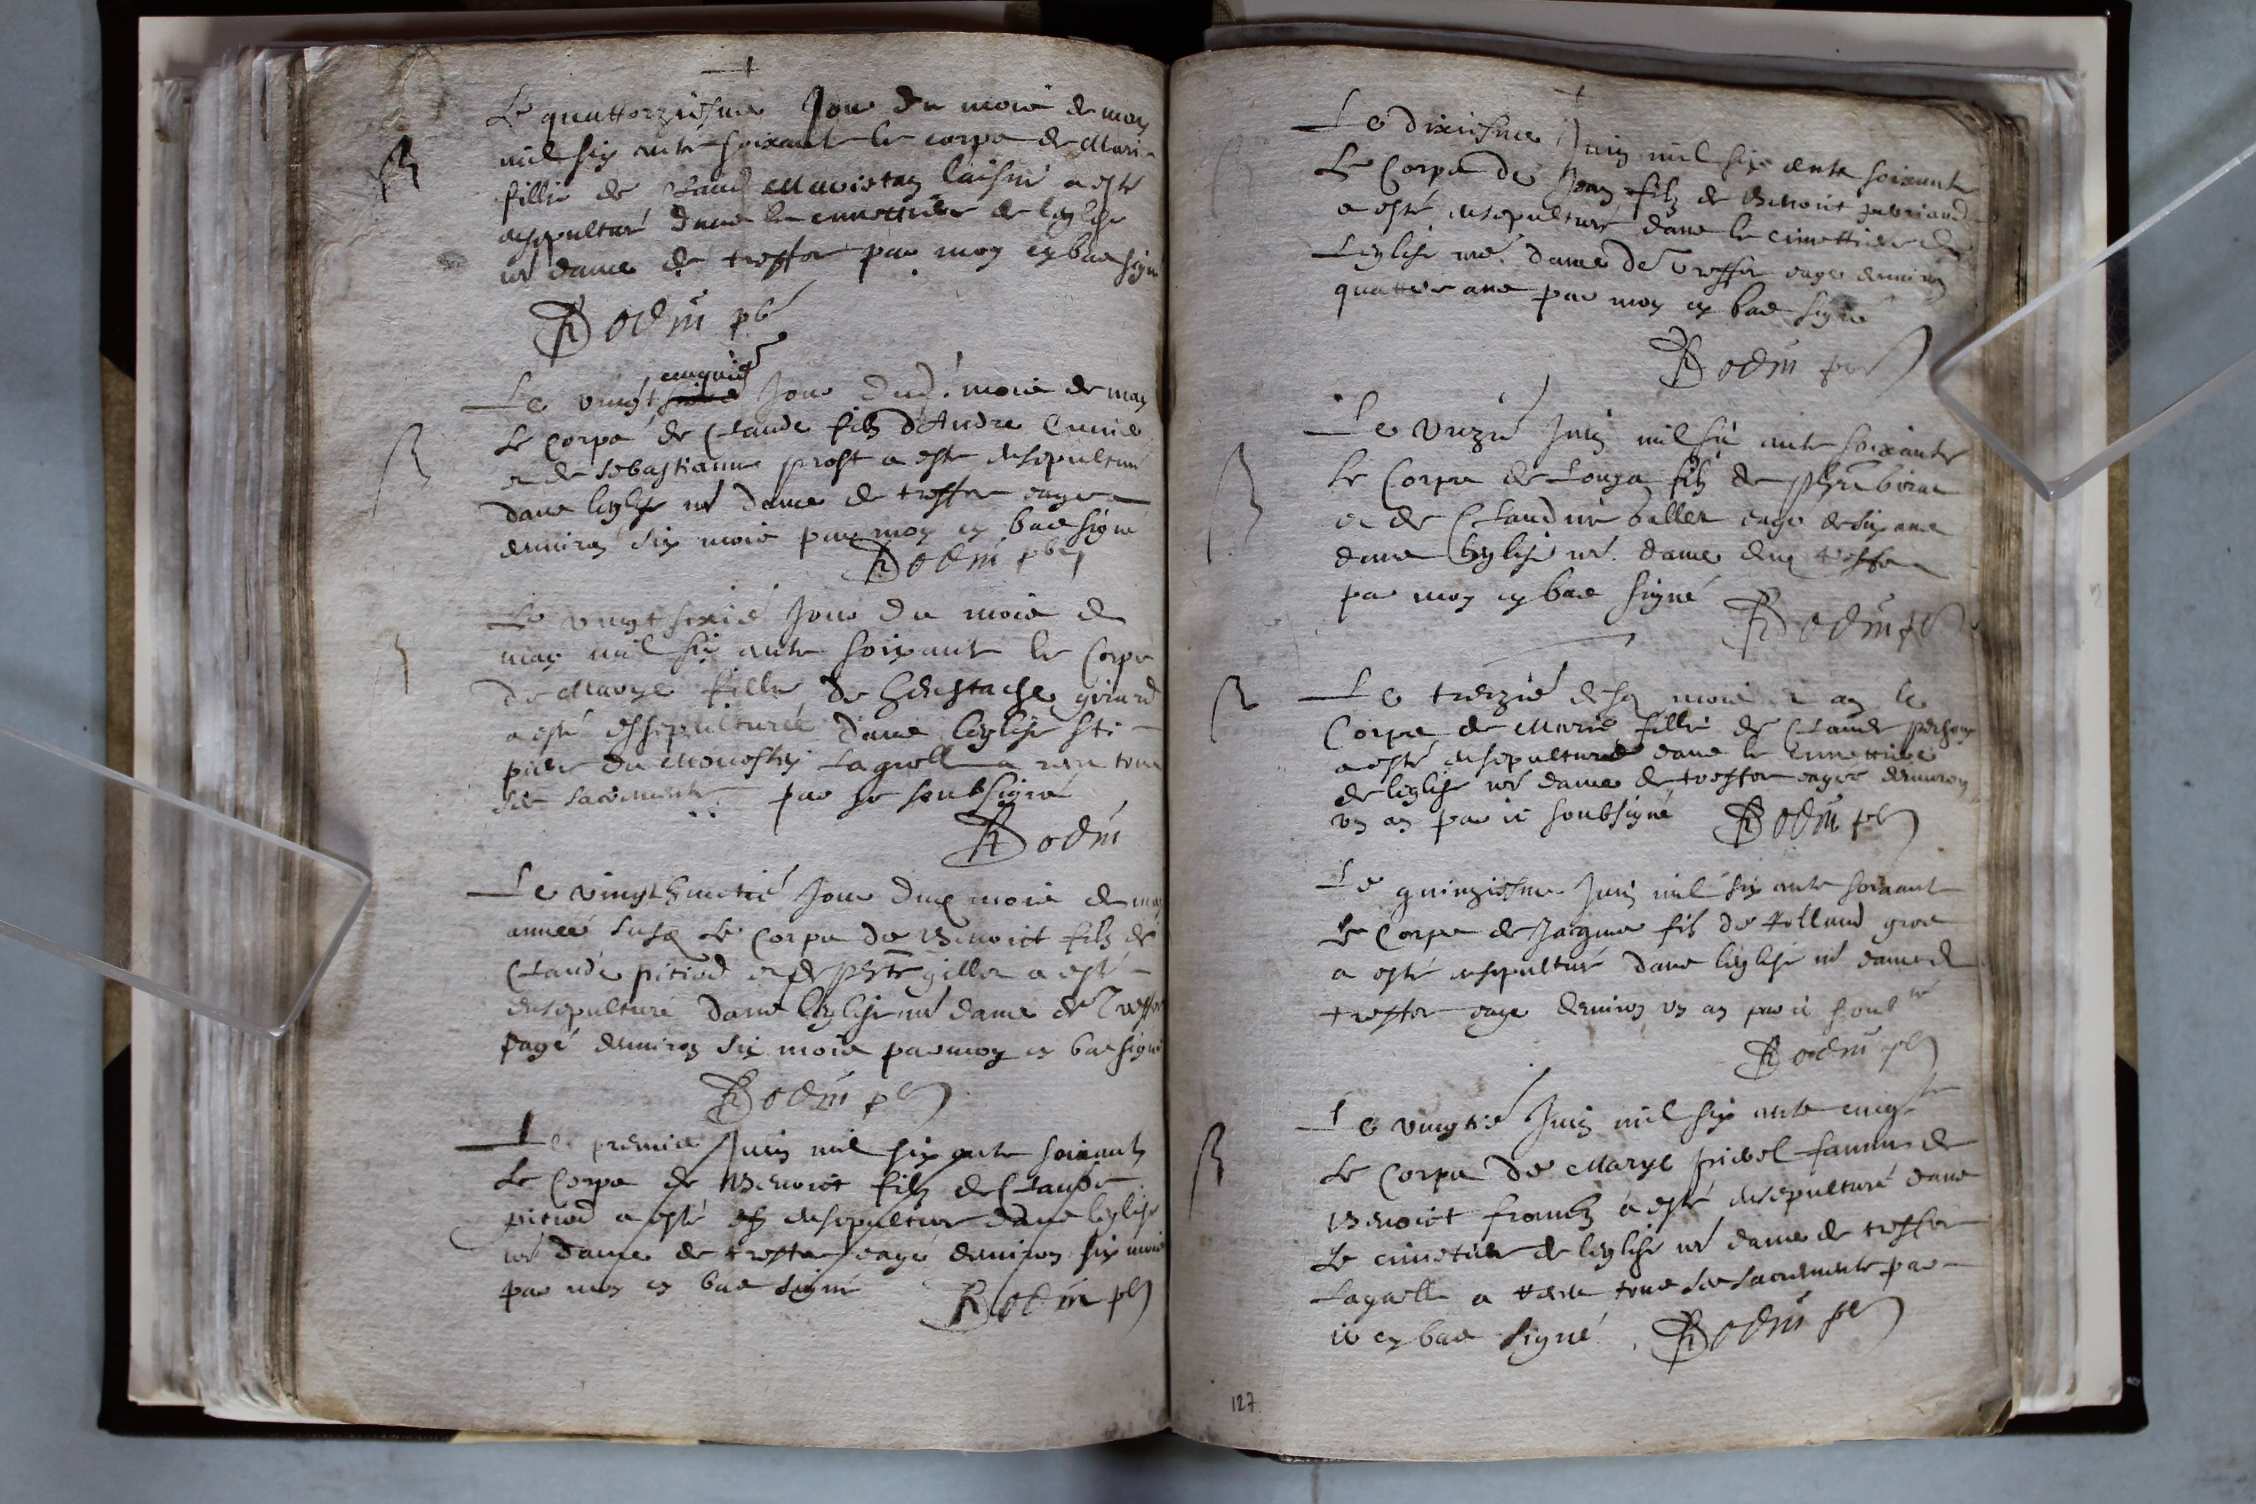 Le quattorziesme Jour du mois de may
mil six cents soixante le corps de Marie
fillie de Claude laisné a esté
ensepulturé dans le cimettiere de leglise
nre dame de treffor par moy cy bas signé
Bodin pbr
cinquie
Le vingt Jour dud. mois de may
Le Corps de Claude filz d'Andre
et de Sebastianne prost a este ensepulturé
dans leglise nre dame de treffor eagé
denviron six mois par moy cy bas signé
Bodin pbr
Le vingt sixié Jour du mois de
may mil six cents soixante le Corps
de Marye fillie de Heustache girard
a esté ensepulturée dans leglise St
pierre du Monestey laquelle a receu tous
ses sacrements par je soubsigné
Bodin
Le vingt huictié Jour dud mois de may
année susd Le Corps de Benoict filz de
Claude pitiod et de giller a esté
ensepulturé dans leglise nre dame de Treffor
eagé denviron six mois par moy cy bas signé
Bodin pbr
Le premier Juin mil six cents soixante
Le Corps de Benoict filz de Claude
pitiod a esté ensepulturé dans leglise
nre dame de treffor eagé denviron six mois
par moy cy bas signé Bodin pbr
Le dixiesme Juin mil six cents soixante
Le Corps de Jean filz de Benoict
a esté ensepulturé dans le cimettiere de
Leglise nre dame de Treffor eage denviron
quattre ans par moy cy bas signé
Bodin pbr
Le unzié Juin mil six cents soixante
Le Corps de filz de
et de Claudine baller eagé de six ans
dans leglise nre dame dud treffor
par moy cy bas signé Bodin pbr
Le treizié desd mois et an le
Corps de Marie fillie de Claude
a esté ensepulturée dans le cimettiere
de leglise nre dame de treffor eagée denviron
un an par ie soubsigné Bodin pbr
Le quinziesme Juin mil six cents soixante
Le Corps de Jacques filz de Rolland gros
a esté ensepulturé dans leglise nre dame de
treffor eage denviron un an par ie soubné
Bodin pbr
Le vingtié Juin mil six cents
Le Corps de Marye famme de
Benoict a esté ensepulturé dans
Le cimetiere de leglise nre dame de treffor
Laquelle a receu tous ses sacrements par
ie cy bas signé Bodin pbr
127